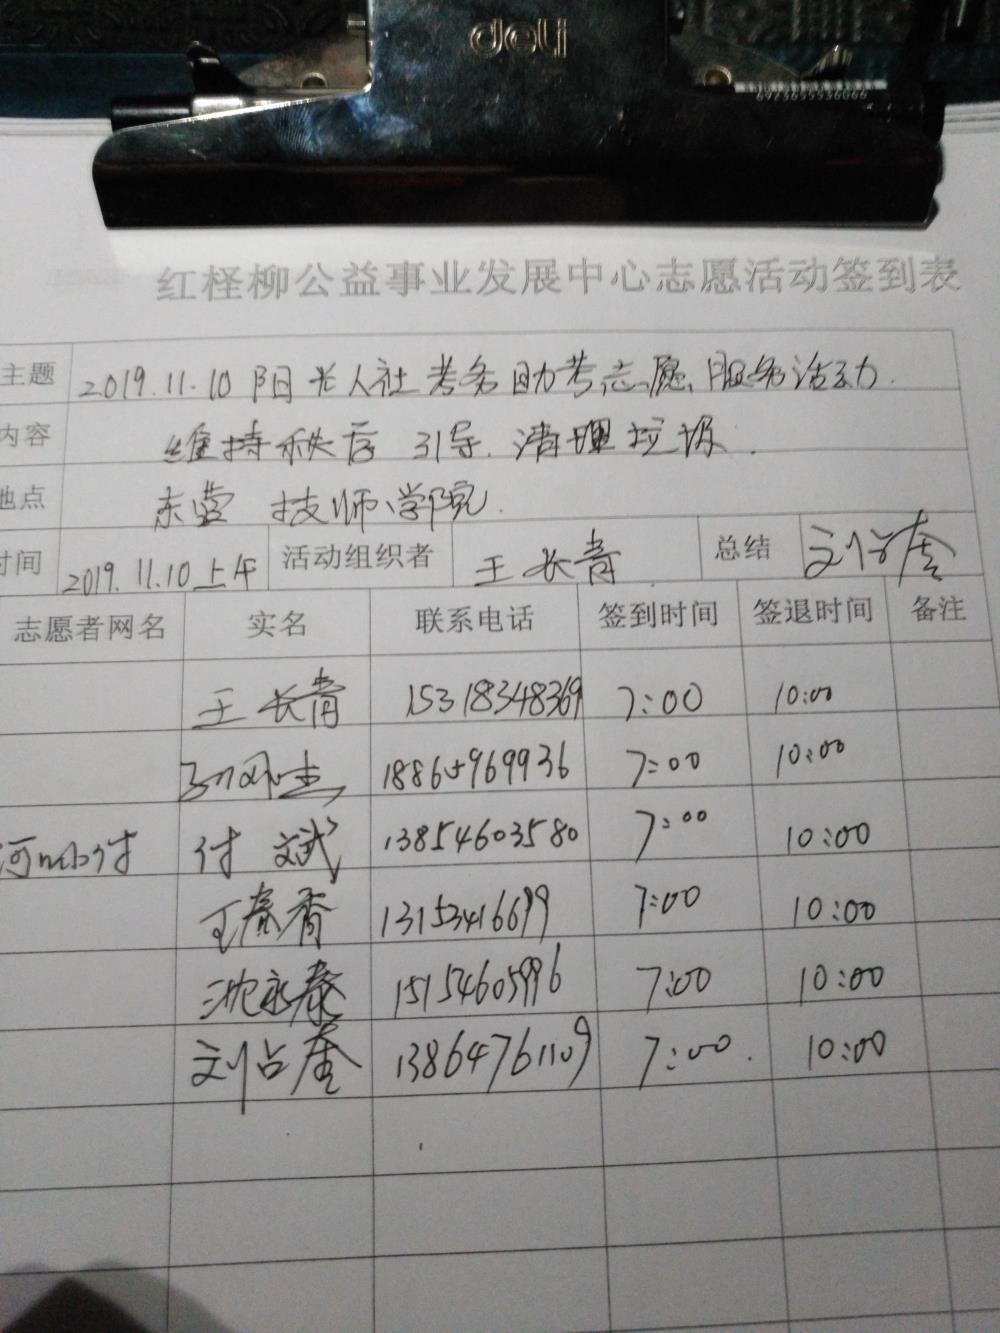 deli
6923655936066
红柽柳公益事业发展中心志愿活动签到表
主题 2019.11.10 阳光人社考务助考志愿服务活动.
内容 维持秩序 引导.清理垃圾.
地点 东营 技师学院.
时间 2019.11.10上午 活动组织者 王长青 总结 刘占奎
志愿者网名 实名 联系电话 签到时间 签退时间 备注
王长青 15318348369 7:00 10:00
7:00 10:00
付文斌 13854603580 7:00 10:00
王春香 13153416699 7:00 10:00
沈永泰 15154605996 7:00 10:00
刘占奎 13864761109 7:00. 10:00